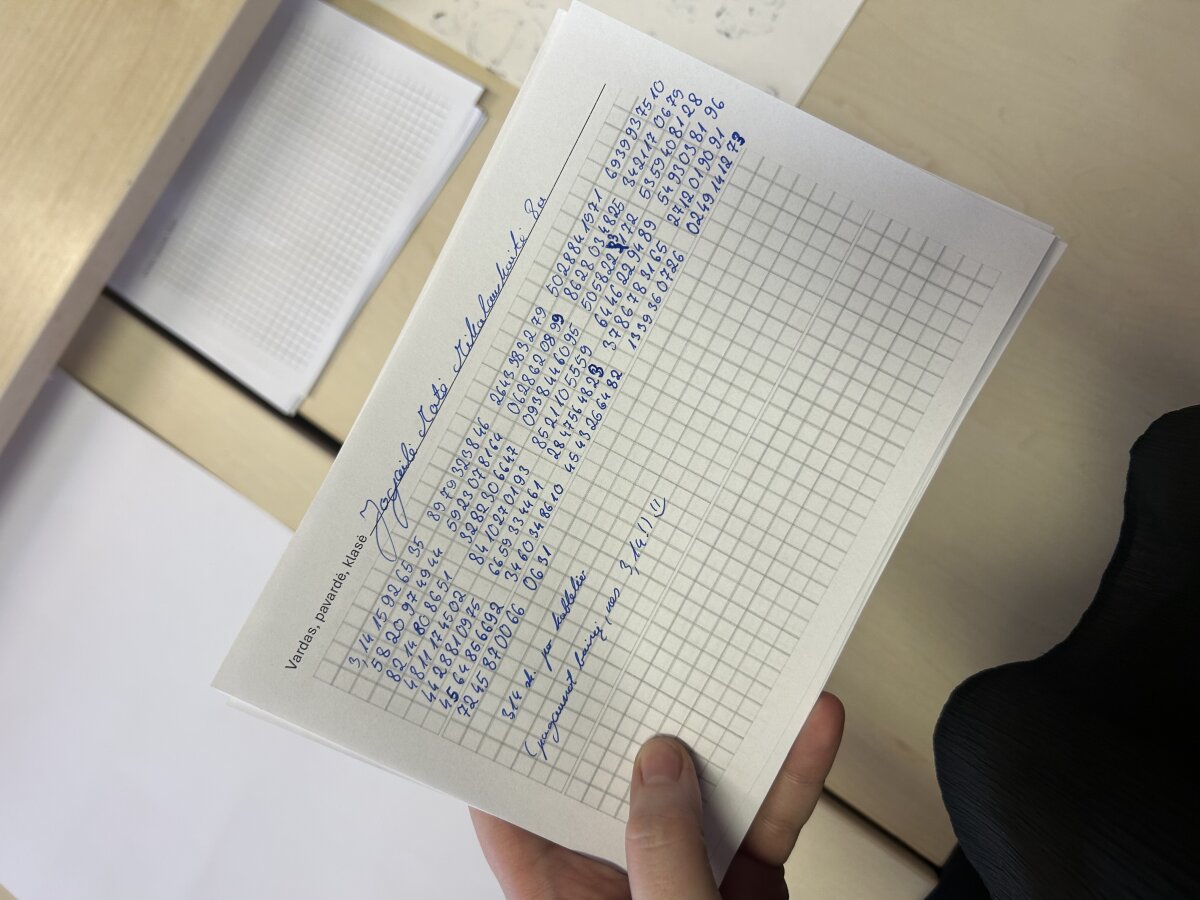 Vardas, pavardė, klasė 8a
3,1415926535 8979323846 2643383279 5028841971 6939937510
5820974944 5923078164 0628620899 8628034825 3421170679
8214808651 3282306647 0938446095 5058223172 5359408128
4811174502 8410270193 8521105559 6446229489 5493038196
4428810975 6659334461 2847564823 3786783165 2712019091
4564856692 3460348610 4543266482 1339360726 0249141273
7245870066 0631
314 sk. po kablelio
(pagaunat bairį, nes 3,14!) :)